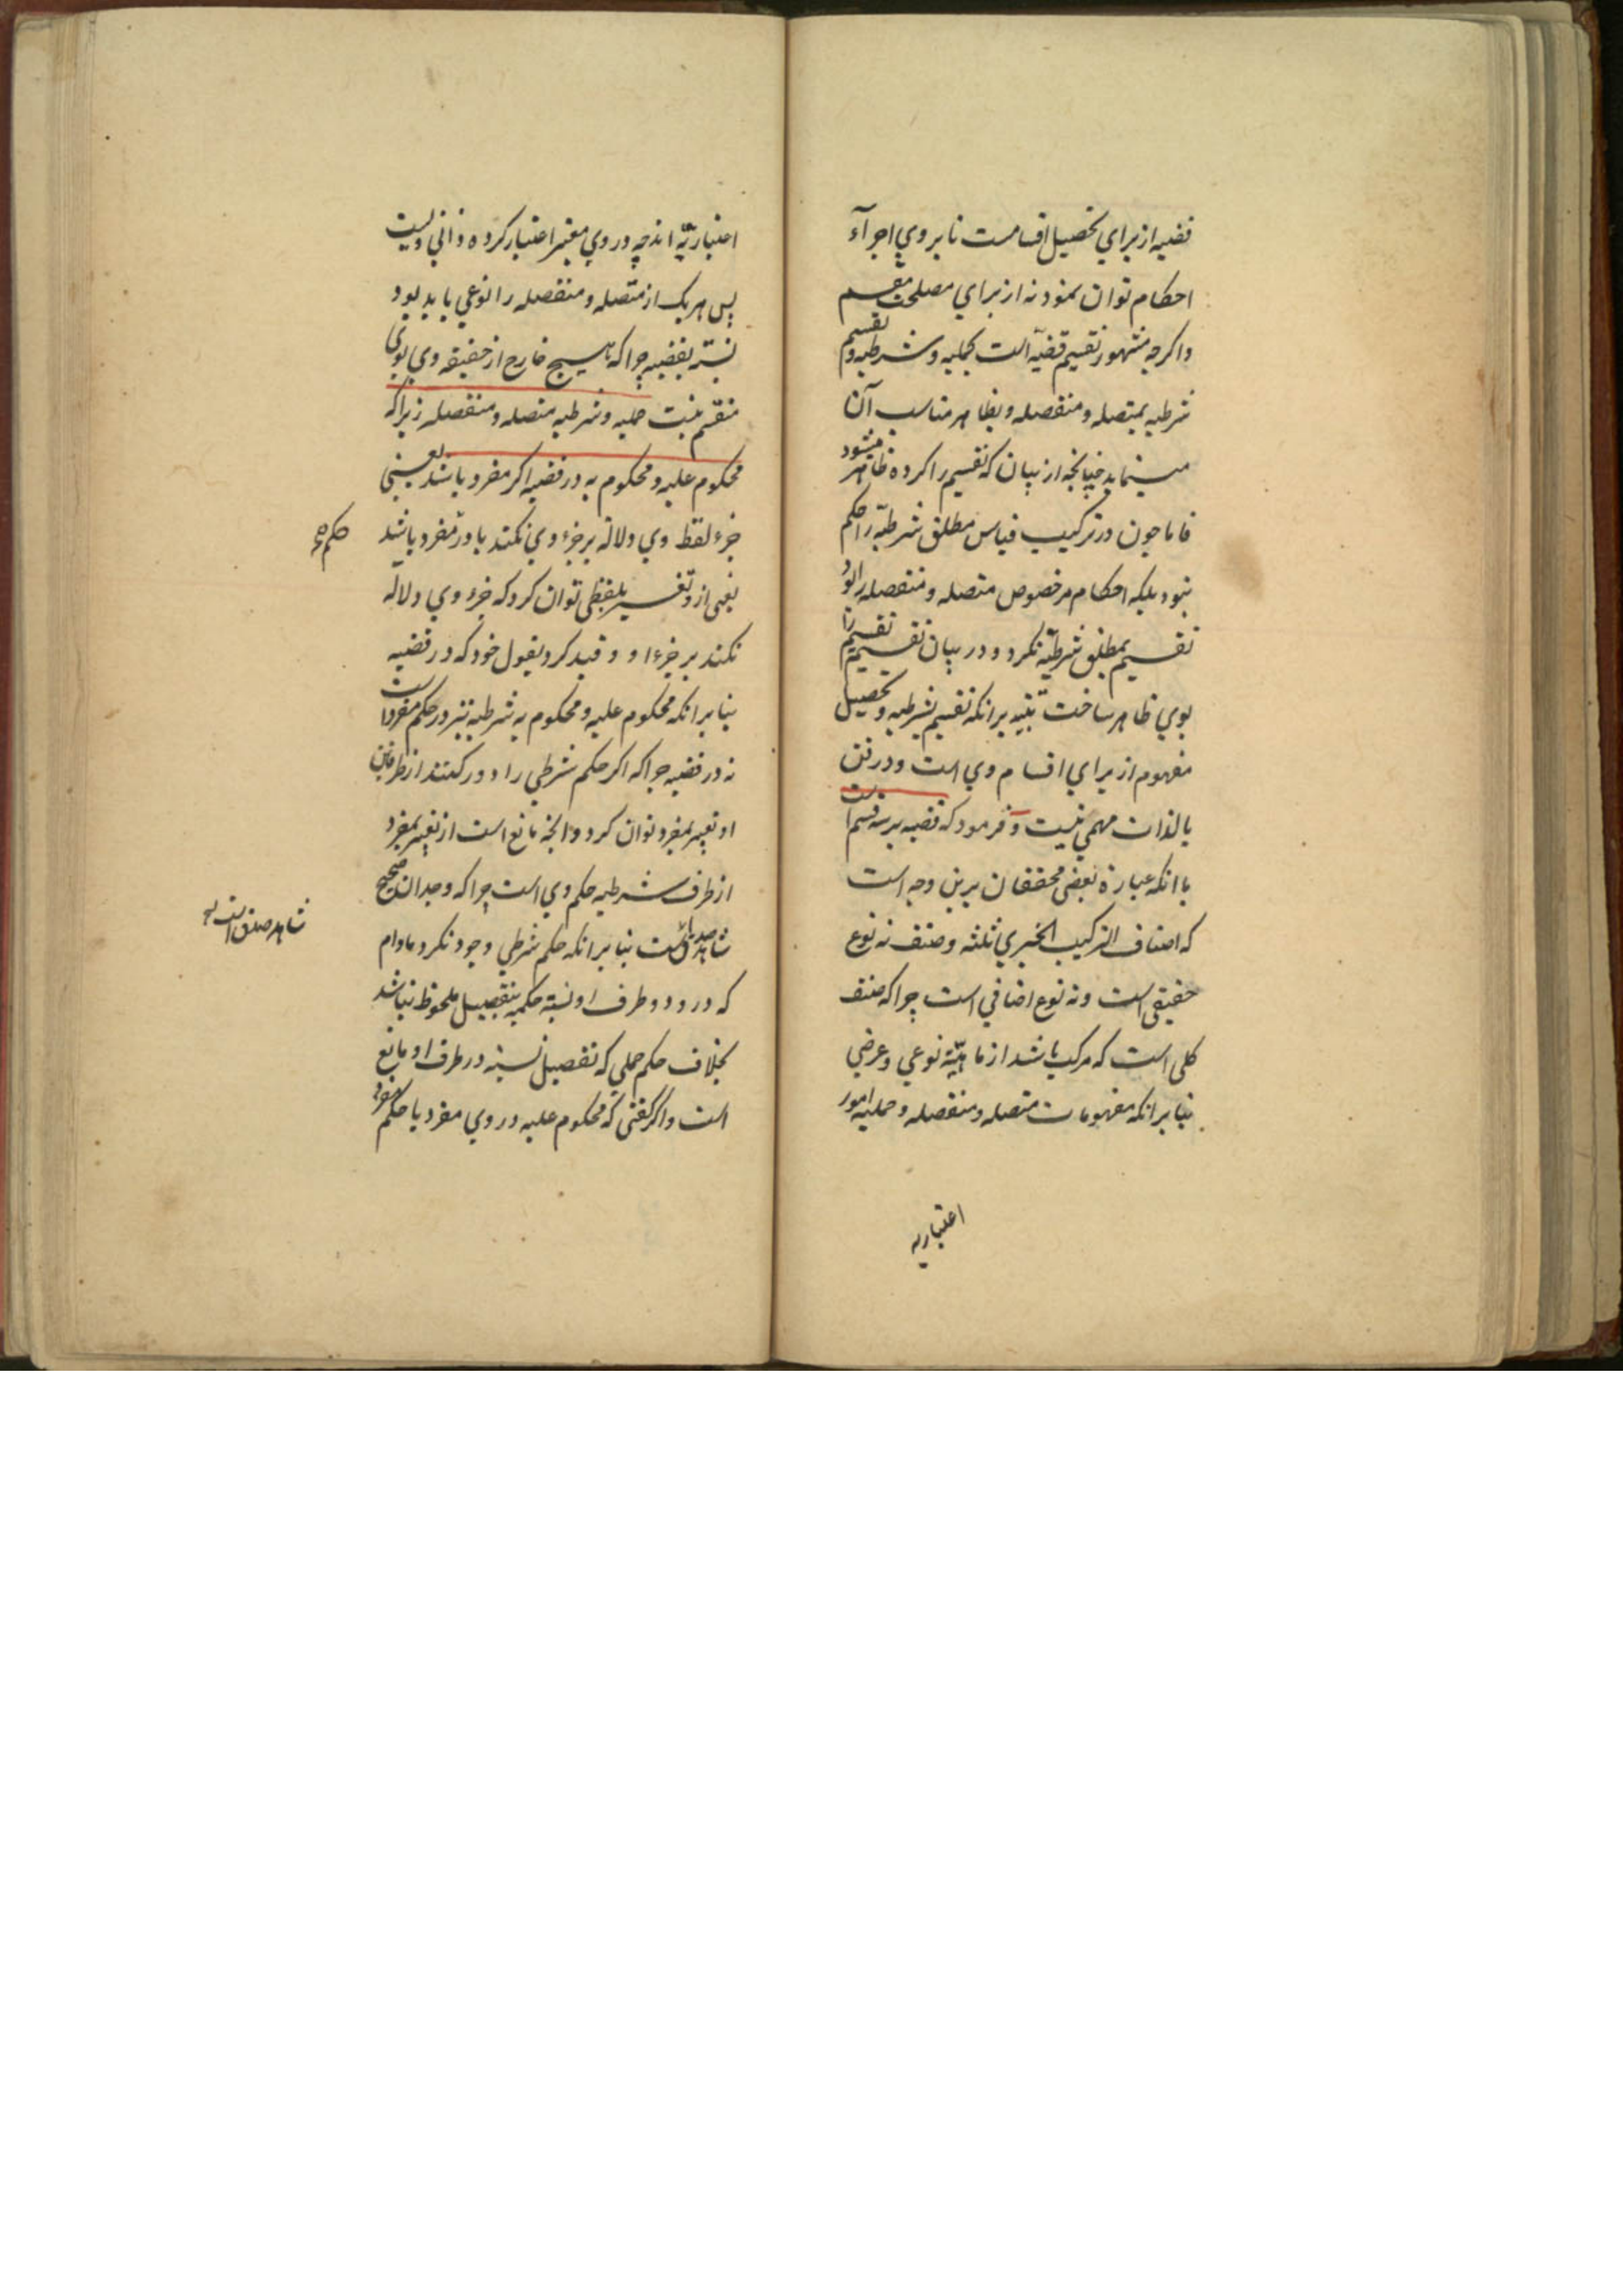 قضیه از برای تحصیل اقسامست تا بر وی اجرآء
احکام توان نمود نه از برای مصلحت مقسم
واکرچه مشهور تقسیم قضیه است بحملیه وشرطیه و تقسیم
شرطیه بمتصله ومنفصله وبظاهر مناسب آن
مینماید چنانچه از بیان که تقسیم را کرده ظاهر میشود
فاما چون در ترکیب قیاس مطلق شرطیه را حکم
نبود بلکه احکام مخصوص متصله ومنفصله را بود
تقسیم بمطلق شرطیه نکرد ودر بیان تقسیم تقسیم را
بوی ظاهر ساخت تنبیه برانکه تقسیم بشرطیه وتحصیل
مفهوم از برای اقسام وی است ودر فن
بالذات مهمی نیست وفرمود که قضیه بر سه قسم است
با انکه عبارة بعضی محققان برین وجه است
که اصناف الترکیب الخبری ثلثه وصنف نه نوع
حقیقی است ونه نوع اضافی است چراکه صنف
کلی است که مرکب باشد از ماهیّة نوعی وعرضی
بنا برانکه مفهومات متصله ومنفصله وحملیه امور
اعتباریه
اعتباریّه اند چه در وی معتبر اعتبار کرده ذاتی ویست
پس هریک از متّصله ومنفصله را نوعی باید بود
نسبة بقضیه چراکه هیچ خارج از حقیقة وی بوی
منقسم نیست حملیه وشرطیه متصله ومنفصله زیراکه
محکوم علیه ومحکوم به در قضیه اکر مفرد باشند یعنی
جزء لفظ وی دلالة بر جزء وی نکند یا در مفرد باشد
حکم صح
یعنی ازو تفسیر بلفظی توان کرد که جزء وی دلالة
نکند بر جزء او وقید کرد بقول خود که در قضیه
بنا برانکه محکوم علیه ومحکوم به شرطیه نیز در حکم مفرد است
نه در قضیه چراکه اکر حکم شرطی را دور کنند از طرفین
او تعبیر بمفرد توان کرد وانچه مانع است از تعبیر بمفرد
از طرف شرطیه حکم وی است چراکه وجدان صحیح
شاهد صدق است بنا برانکه حکم شرطی وجود نکرد مادام
شاهد صدق است
که در دو طرف او نسبة حکمیه بتفصیل ملحوظ نباشد
بخلاف حکم حملی که تفصیل نسبة در طرف او مانع
است واکر کفتی که محکوم علیه در وی مفرد یا حکم مفرد